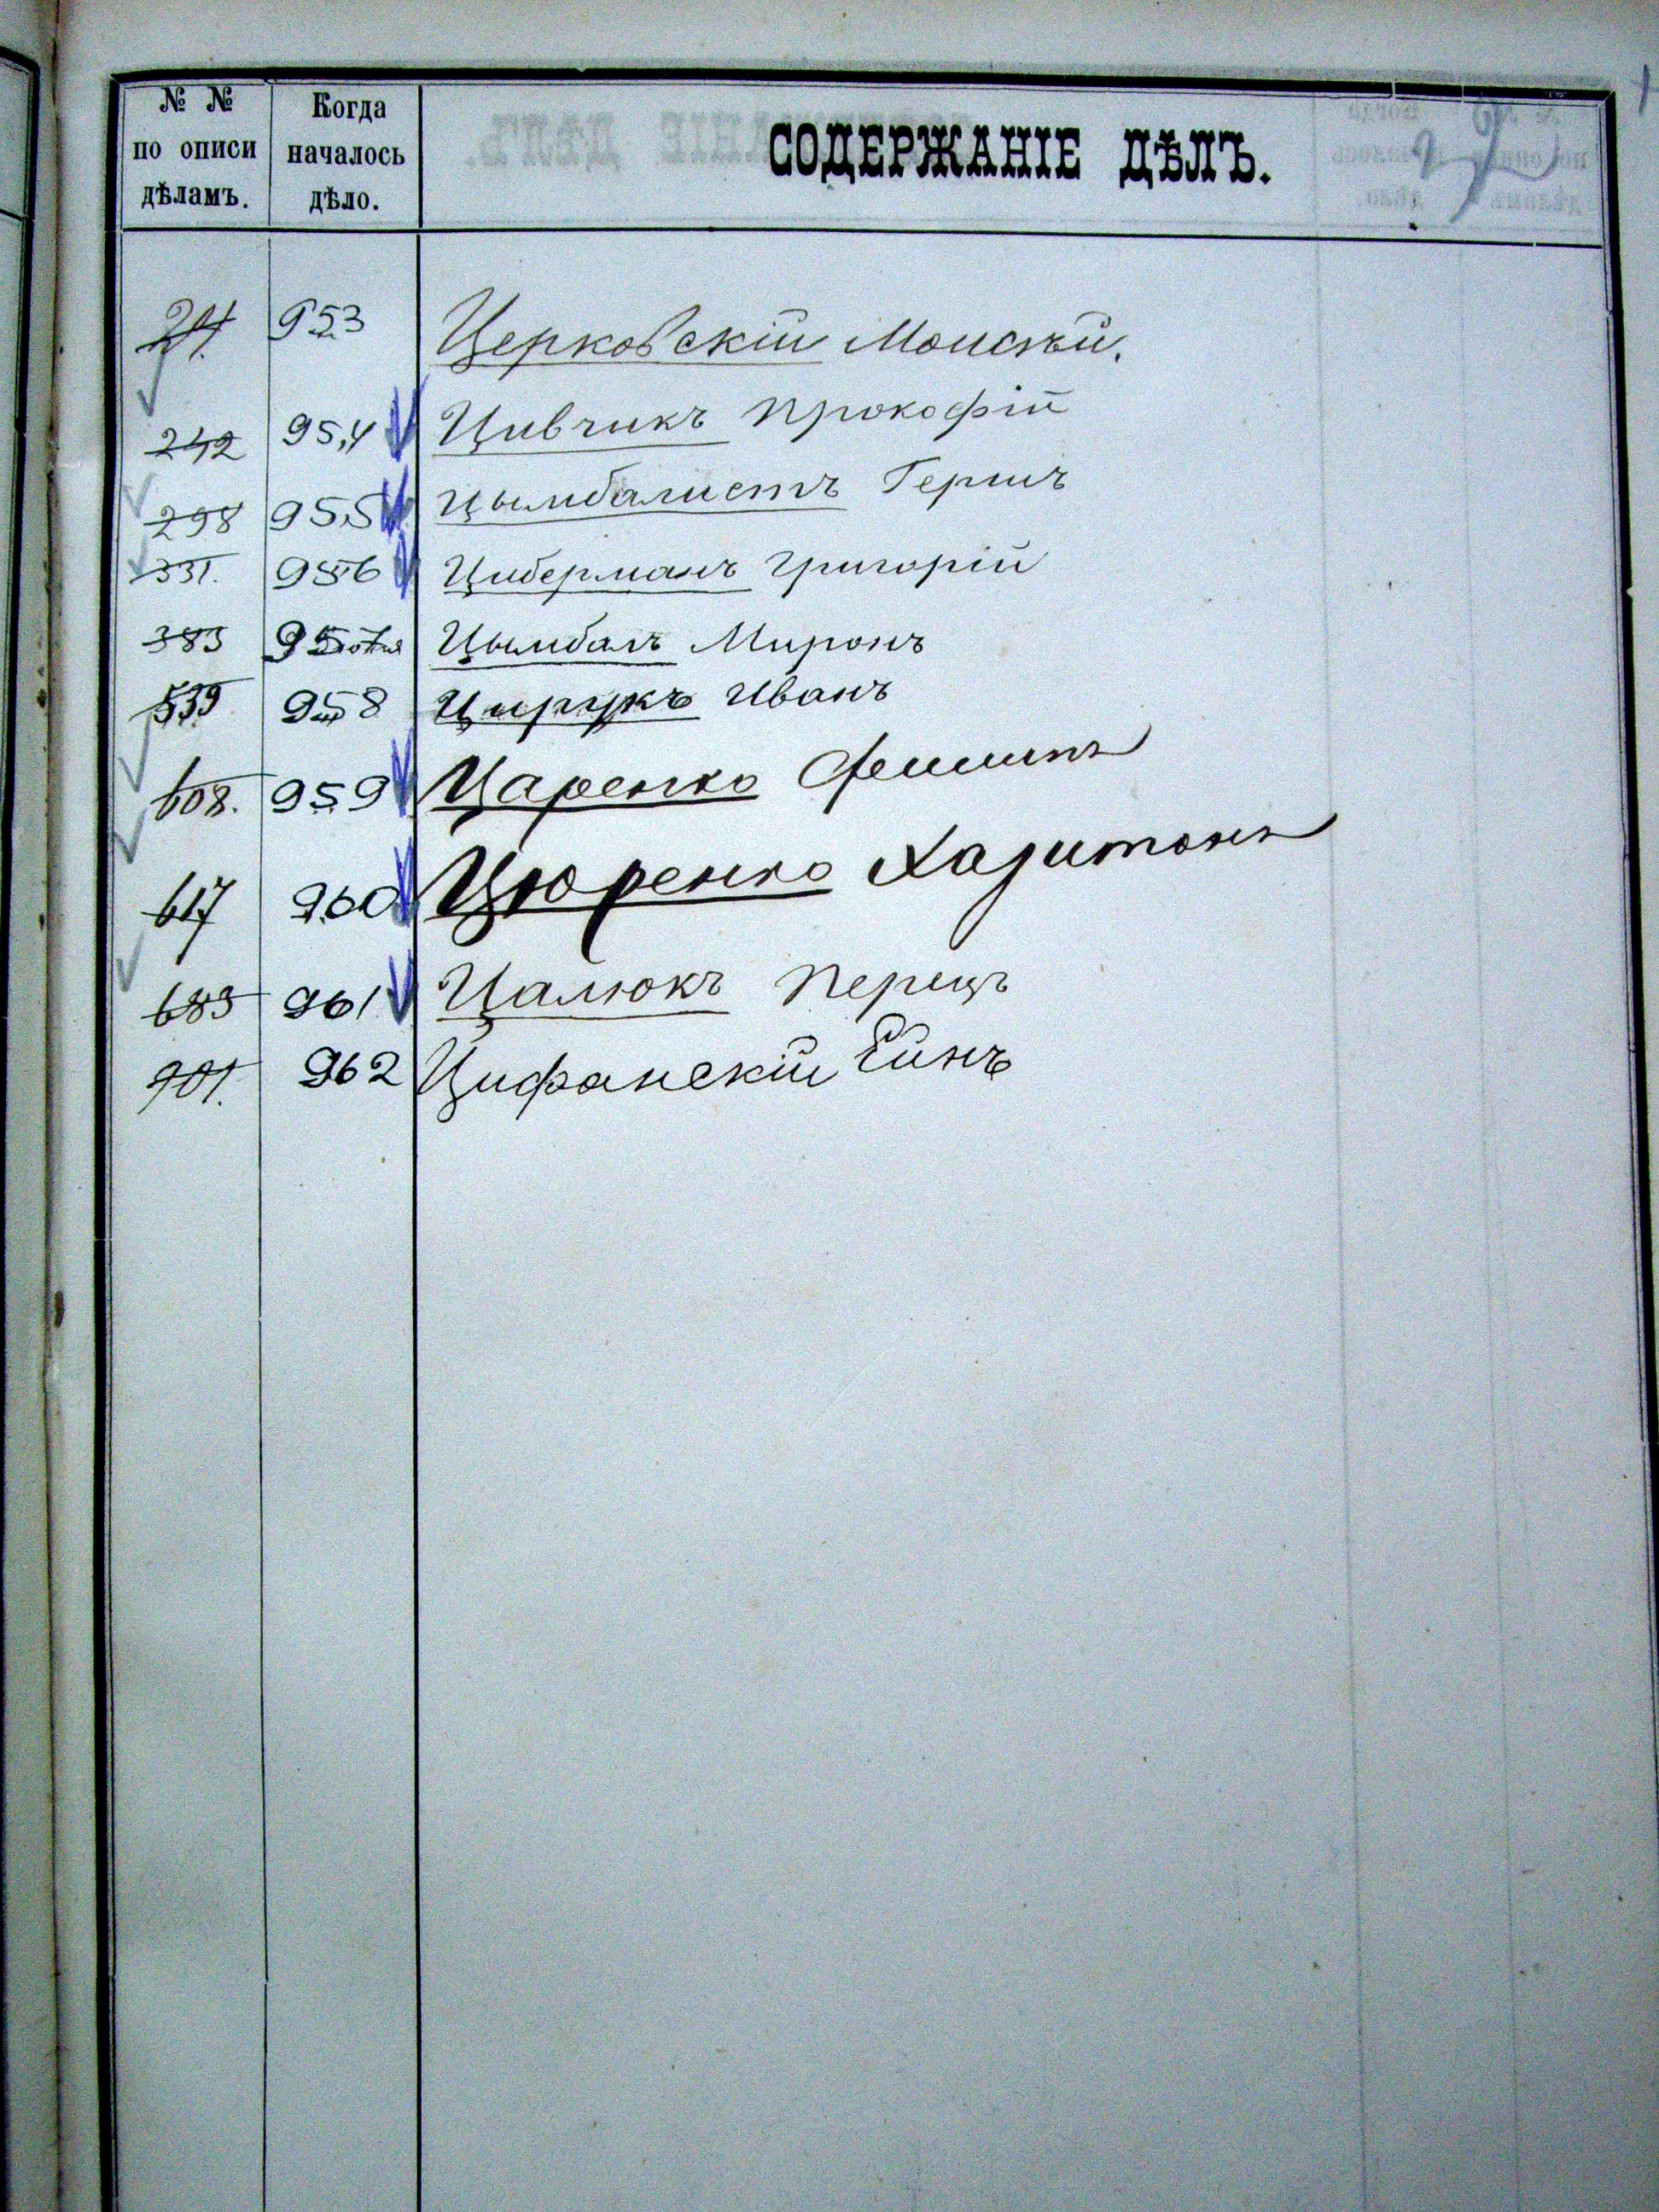 № № по описи дѣламъ.
Когда началось дѣло.
СОДЕРЖАНІЕ ДѢЛЪ.
953 Церковскій Моисѣй.
242 954 Цивчикъ Прокофій
298 955 Цымбалистъ Гершъ
331. 956 Циберманъ Григорій
383 957 Цымбалъ Миронъ
539 958 Цирукъ Иванъ
608. 959 Царенко
617 960 Цюренко Харитонъ
683 961 Цалюкъ Перецъ
901. 962 Цифанскій